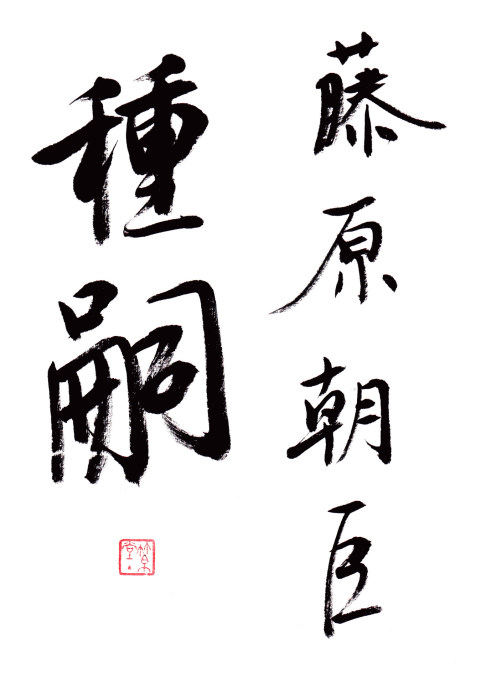 藤原朝臣
種嗣